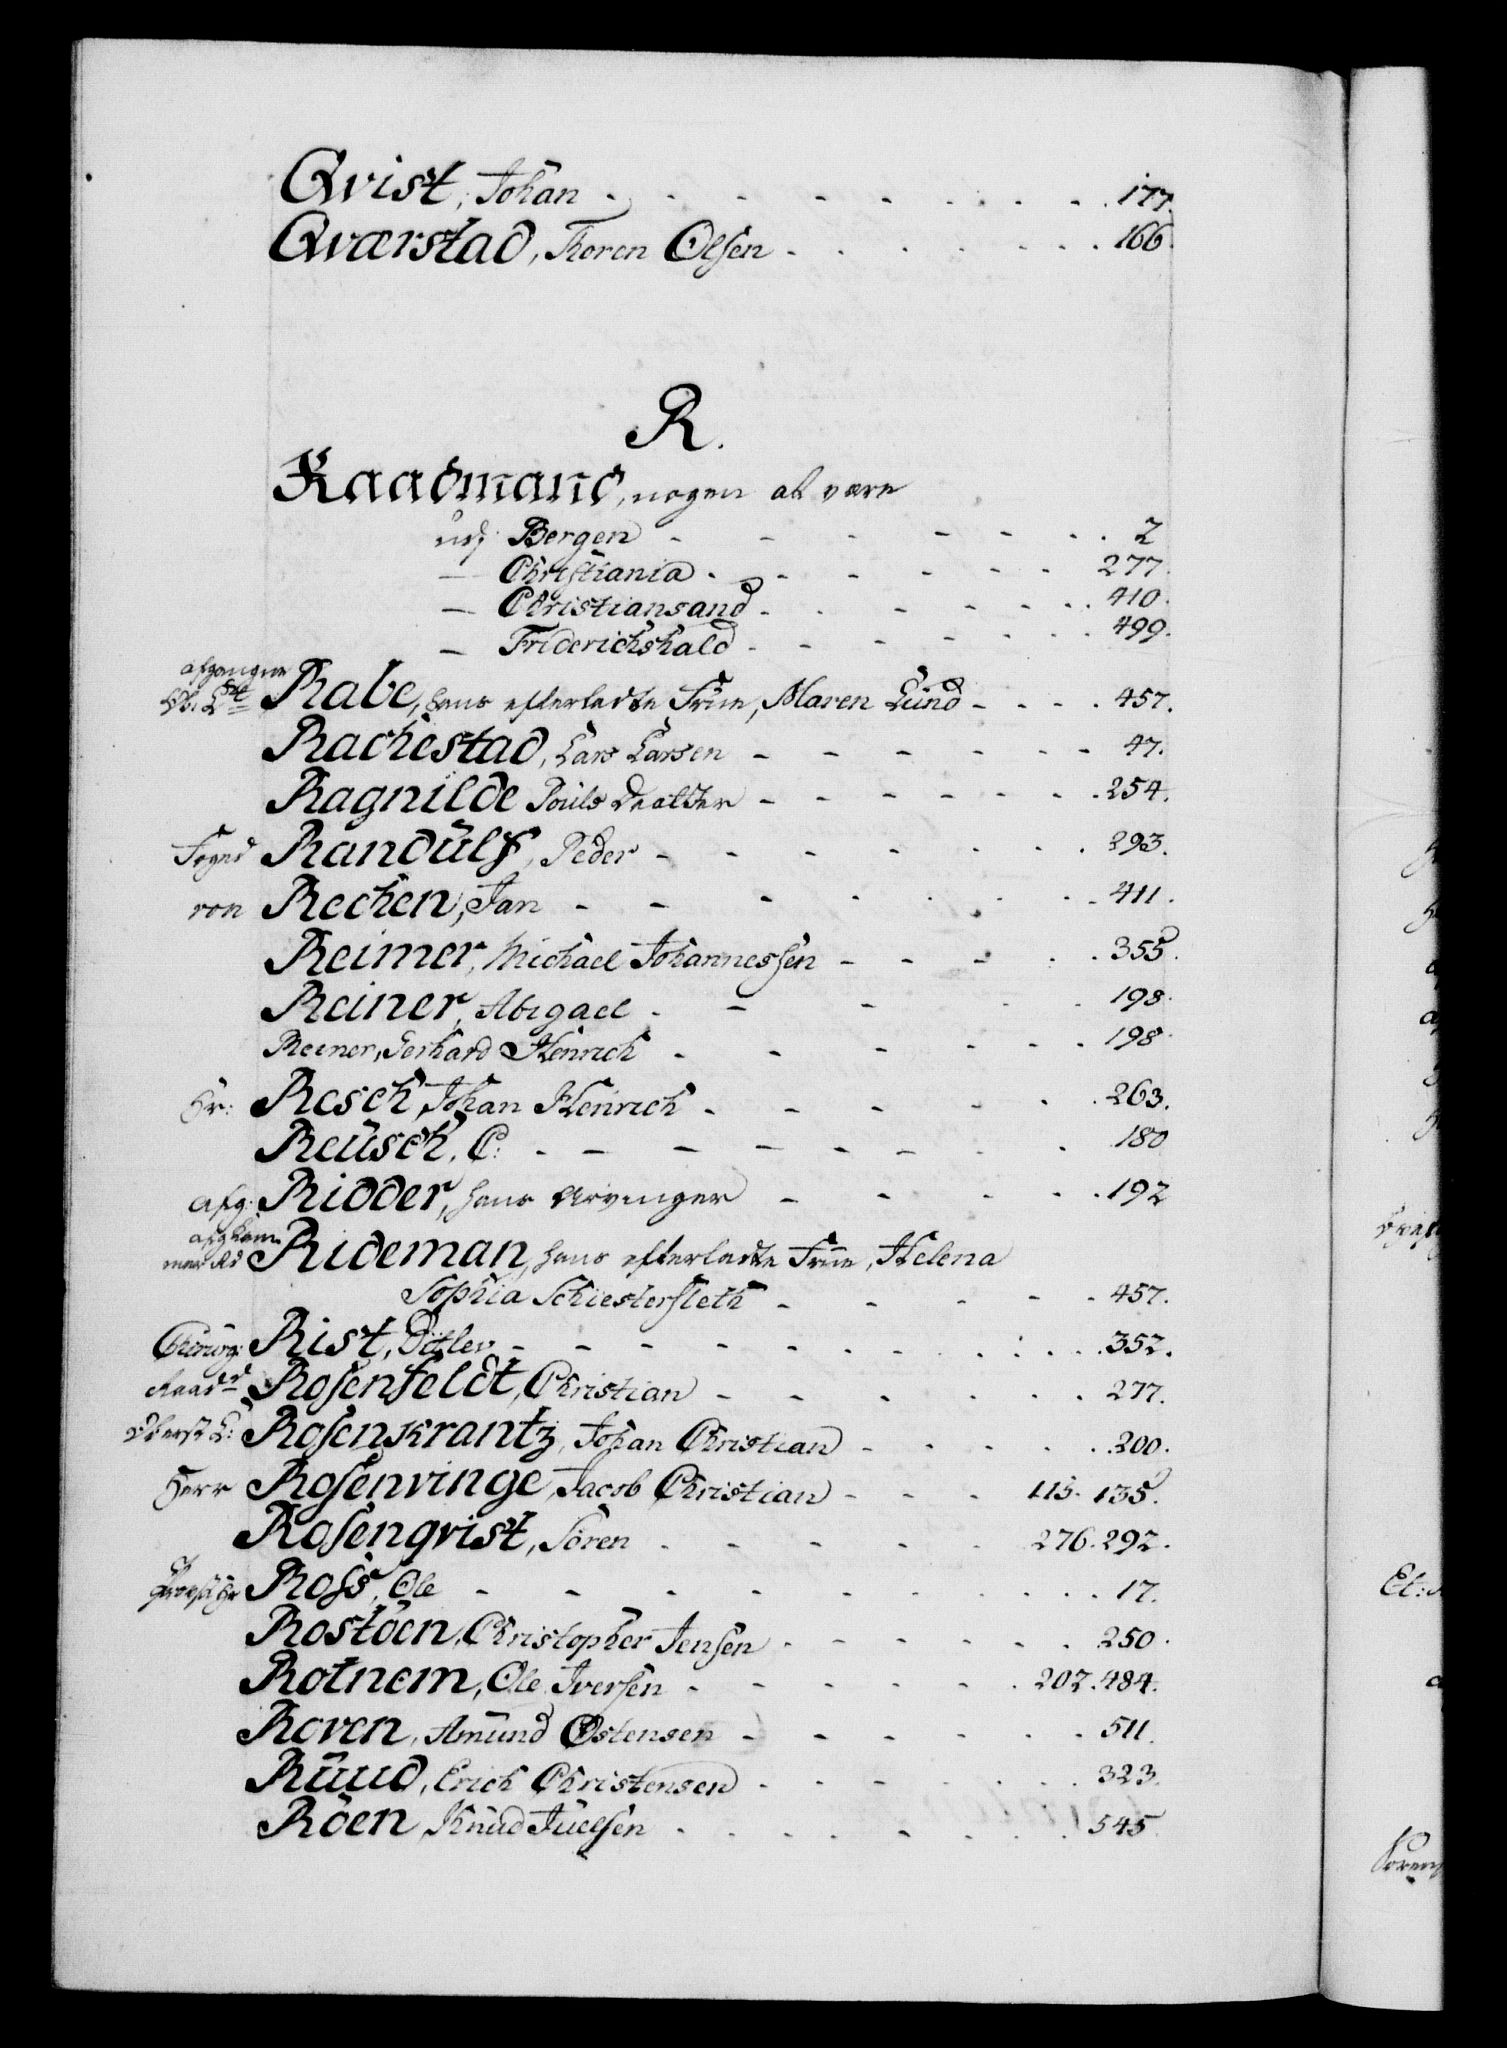 Qvist, Johan - - - - - - - - 177.
Qværstad, Thoren Olsen - - - - - - - 166.
R.
Raadmand, nogen at være
udj Bergen - - - - - - 2
— Christiania - - - - - - 277.
— Christiansand - - - - - - 410.
— Friderichshald - - - - - - 499.
afgangne
Rabe, hans efterladte Frue, Maren Lund - - - - 457.
Rachestad, Lars Larsen - - - - - - 47.
Ragnilde Pouls Daatter - - - - - - 254.
Foged Randulf, Peder - - - - - - 293.
von Rechen, Jan - - - - - - 411.
Reimer, Michael Johannessen - - - - - 355.
Reiner, Abigael - - - - - 198.
Reiner, Gerhard Henrich - - - - - 198.
Hr: Resch, Johan Henrich - - - - - 263.
Reusch, C: - - - - - - - 180
afg: Ridder, hans Arvinger - - - - - 192
afg Cam
mer Rd Rideman, hans efterladte Frue, Helena
Sophia Schiesterfleth - - - - - 457.
Chirurg: Rist, Ditlev - - - - - - - - 352.
Raad Rosenfeldt, Christian - - - - - - 277.
Oberst L: Rosenkrantz, Johan Christian - - - - - 200.
Herr Rosenvinge, Jacob Christian - - - 115. 135.
Rosenqvist, Sören - - - - - 276. 292.
Ross, Ole - - - - - - - - 17.
Rostöen, Christopher Jensen - - - - - - 250.
Rotnem, Ole Iversen - - - - - - 202. 484.
Roven, Amund Östensen - - - - - - 511.
Ruud, Erich Christensen - - - - - - 323.
Röen, Knud Juelsen - - - - - - - 545.